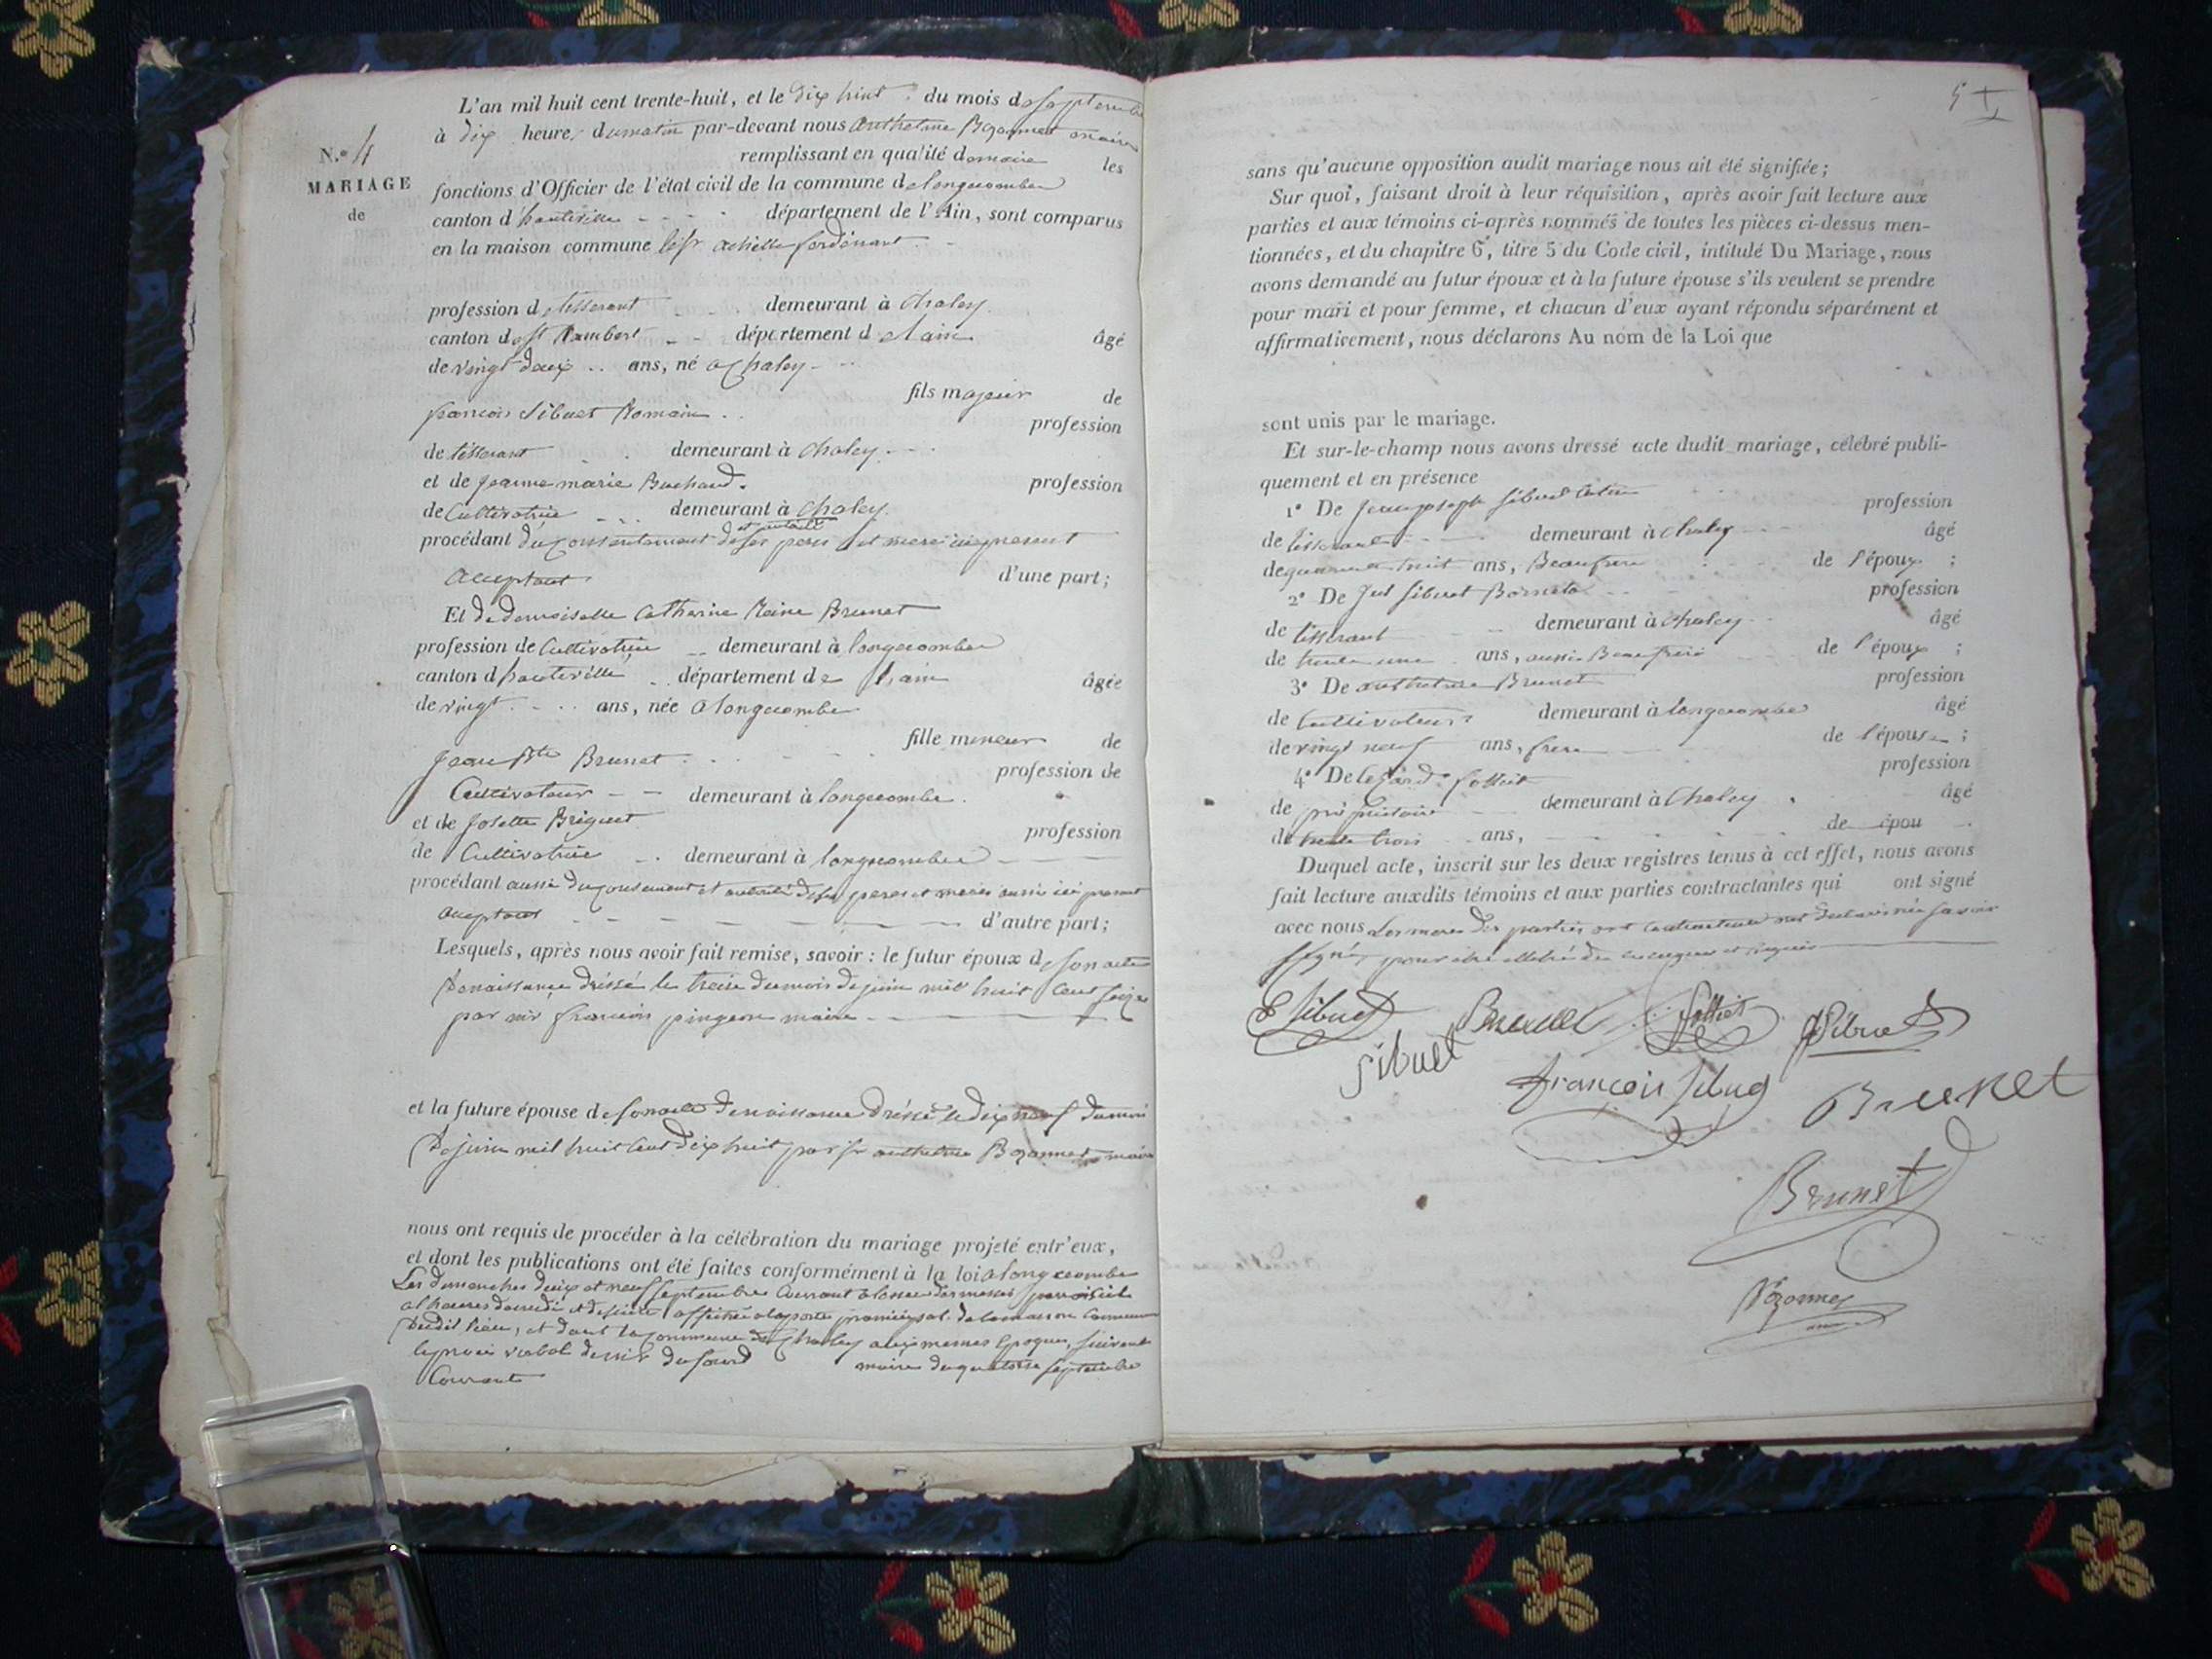 L'an mil huit cent trente-huit, et le dix huit du mois de septembre
à dix heures du matin par-devant nous anthelme Bozonnet maire
N.º 4
remplissant en qualité de maire les
MARIAGE
fonctions d'Officier de l'état civil de la commune de longecombe
de
canton d'hauteville département de l'Ain, sont comparus
en la maison commune
profession de tisserant demeurant à Chaley
canton de St Rambert département de l'ain âgé
de vingt deux ans, né a Chaley
fils majeur de
françois Sibuet Romain
profession
de tisserant demeurant à Chaley
et de jeanne marie Buchard profession
de Cultivatrice demeurant à Chaley
procédant du consentement de ses peres et meres ici present
acceptant d'une part;
Et de demoiselle Catherine Reine Brunet
profession de Cultivatrice demeurant à longecombe
canton d'hauteville département de l'ain âgée
de vingt ans, née a longecombe
fille mineur de
jean Bte Brunet
profession de
Cultivateur demeurant à longecombe
et de Josette Briguet profession
de Cultivatrice demeurant à longecombe
procédant aussi du et autorité de ses peres et meres aussi ici present
acceptant d'autre part;
Lesquels, après nous avoir fait remise, savoir: le futur époux de son acte
de naissance dréssé le treize du mois de juin mil huit cent seize
par mr françois pingeon maire
et la future épouse de son acte de naissance dréssé le dix neuf du mois
de juin mil huit cent dix huit par sr anthelme Bozonnet maire
nous ont requis de procéder à la célébration du mariage projeté entr'eux,
et dont les publications ont été faites conformément à la loi a longecombe
Les dimanches deux et neuf septembre Courant
de la maison Commune
dudit lieu, et dans la commune de Chaley aux memes Epoques, suivant
maire du quatorze septembre
Courant
5
sans qu'aucune opposition audit mariage nous ait été signifiée;
Sur quoi, faisant droit à leur réquisition, après avoir fait lecture aux
parties et aux témoins ci-après nommés de toutes les pièces ci-dessus men-
tionnées, et du chapitre 6, titre 5 du Code civil, intitulé Du Mariage, nous
avons demandé au futur époux et à la future épouse s'ils veulent se prendre
pour mari et pour femme, et chacun d'eux ayant répondu séparément et
affirmativement, nous déclarons Au nom de la Loi que
sont unis par le mariage.
Et sur-le-champ nous avons dressé acte dudit mariage, célébré publi-
quement et en présence
1º De jean joseph Sibuet profession
de tisserant demeurant à Chaley âgé
de quarante huit ans, Beaufrere de l'époux;
2º De Sibuet profession
de tisserant demeurant à Chaley âgé
de trente une ans, aussi Beaufrere de l'époux;
3º De anthelme Brunet profession
de Cultivateur demeurant à longecombe âgé
de vingt neuf ans, frere de l'épouse;
4º De profession
de propriétaire demeurant à Chaley âgé
de trente trois ans, de épou
Duquel acte, inscrit sur les deux registres tenus à cet effet, nous avons
fait lecture auxdits témoins et aux parties contractantes qui ont signé
avec nous Les meres des parties ont savoir
signé, pour être
Sibuet
Sibuet
Brunet
folliet
Sibuet
françois Sibuet
Brunet
Brunet
Bozonnet